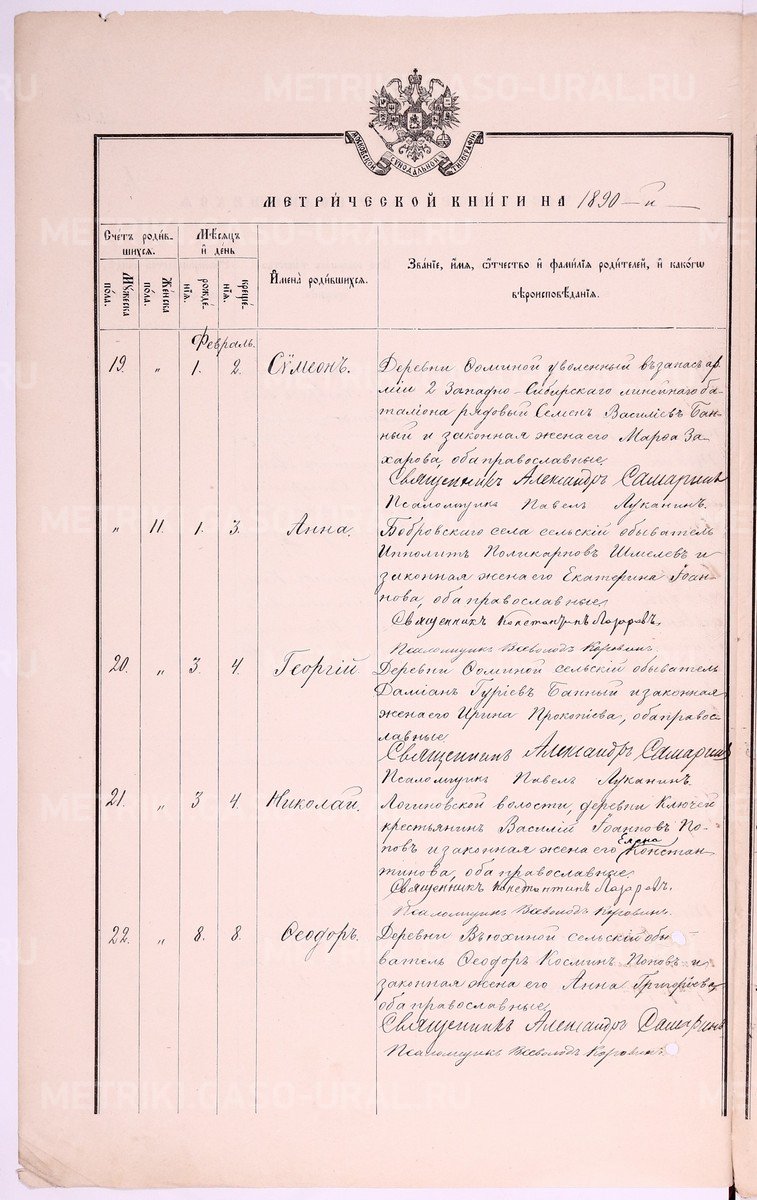 МОСКОВСКОЙ СѴНОДАЛЬНОЙ ТИПОГРАФІИ
МЕТРИ́ЧЕСКОЙ КНИ́ГИ НА 1890 — й —
Сче́тъ роди́в-
шихся.
Мꙋ́жеска
по́ла.
Же́нска
по́ла.
Мѣ́сяцъ
и҆ де́нь
рожде́-
нїѧ.
креще́-
нїѧ.
И҆мена̀ роди́вшихся.
Зва́нїе, и҆́мя, ѻ҆́тчество и҆ фами́лїя роди́телей, и҆ како́гѡ
вѣроисповѣ́данїѧ.
Февраль.
19. „ 1. 2. Сѵмеонъ.
Деревни Ѳоминой уволенный въ запасъ ар-
міи 2 Западно-Сибирскаго линейнаго ба-
таліона рядовый Семенъ Василіевъ Бан-
ный и законная жена его Марѳа За-
харова, оба православные.
Священникъ Александръ Самаринъ
Псаломщикъ Павелъ Луканинъ.
„ 11. 1. 3. Анна.
Бобровскаго села сельскій обыватель
Ипполитъ Поликарповъ Шмелевъ и
законная жена его Екатерина Іоан-
нова, оба православные
Священникъ Константинъ Лазаревъ.
Псаломщикъ Всеволодъ Коровинъ.
20. „ 3. 4. Георгій.
Деревни Ѳоминой сельскій обыватель
Даміанъ Гуріевъ Банный и законная
жена его Ирина Прокопіева, оба право-
славные
Священникъ Александръ Самаринъ
Псаломщикъ Павелъ Луканинъ.
21. „ 3 4. Николай.
Логиновской волости, деревни Ключей
крестьянинъ Василій Іоанновъ По-
повъ и законная жена его Елена Констан-
тинова, оба православные
Священникъ Константинъ Лазаревъ.
Псаломщикъ Всеволодъ Коровинъ.
22. „ 8. 8. Ѳеодоръ.
Деревни Вьюхиной сельскій обы-
ватель Ѳеодоръ Косминъ Поповъ и
законная жена его Анна Григоріева,
оба православные
Священникъ Александръ Самаринъ
Псаломщикъ Всеволодъ Коровинъ.
METRIKI.GASO-URAL.RU